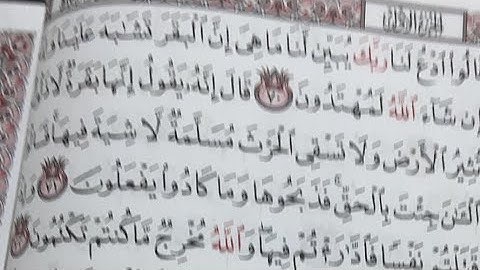 الجزء الأول
ادْعُ لَنَا رَبَّكَ يُبَيِّنْ لَنَا مَا هِيَ إِنَّ الْبَقَرَ تَشَٰبَهَ عَلَيْنَا
إِن شَاءَ اللَّهُ لَمُهْتَدُونَ ٧٠ قَالَ إِنَّهُ يَقُولُ إِنَّهَا بَقَرَةٌ لَا
تُثِيرُ الْأَرْضَ وَلَا تَسْقِي الْحَرْثَ مُسَلَّمَةٌ لَا شِيَةَ فِيهَا
الْـَٰٔنَ جِئْتَ بِالْحَقِّ فَذَبَحُوهَا وَمَا كَادُوا يَفْعَلُونَ ٧١
قَتَلْتُمْ نَفْسًا فَادَّٰرَءْتُمْ فِيهَا وَاللَّهُ مُخْرِجٌ مَا كُنْتُمْ تَكْتُمُونَ